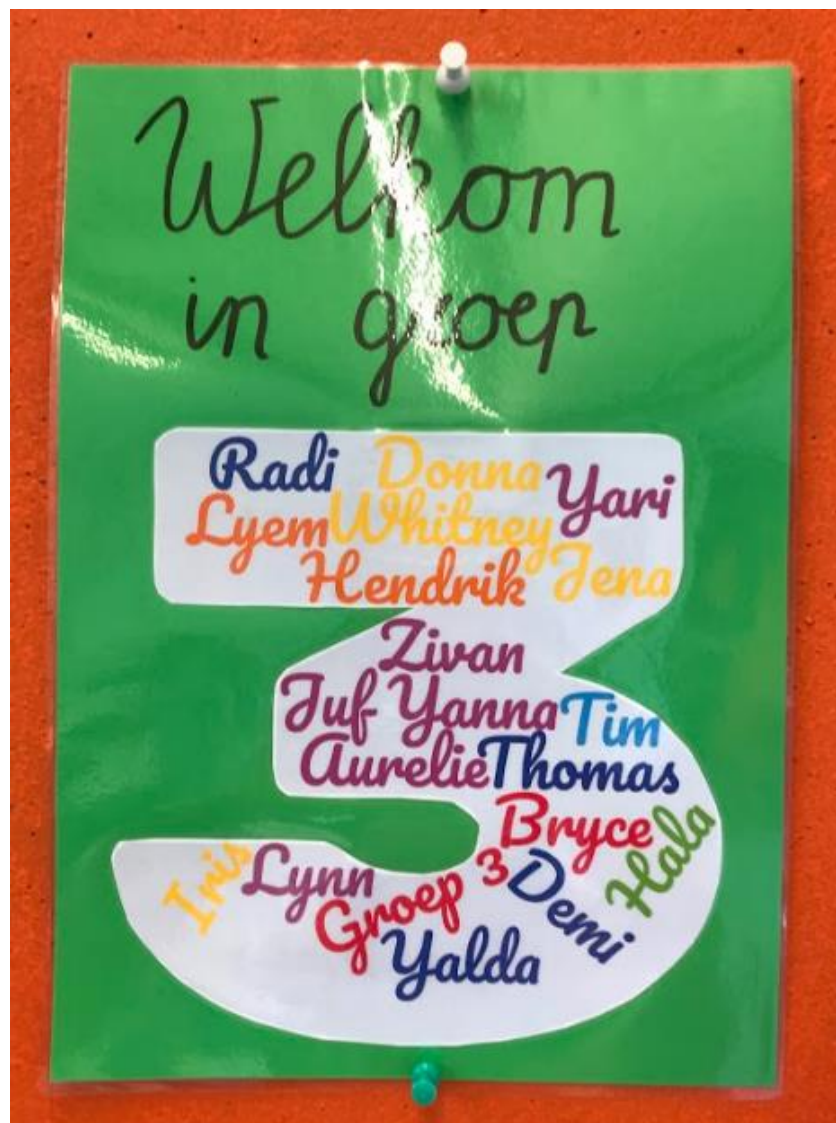 Welkom
in groep
Radi Donna Yari
Lyem Whitney
Hendrik Jena
Zivan
Juf Yanna Tim
Aurelie Thomas
Bryce Hala
Iris Lynn Groep 3 Demi
Yalda